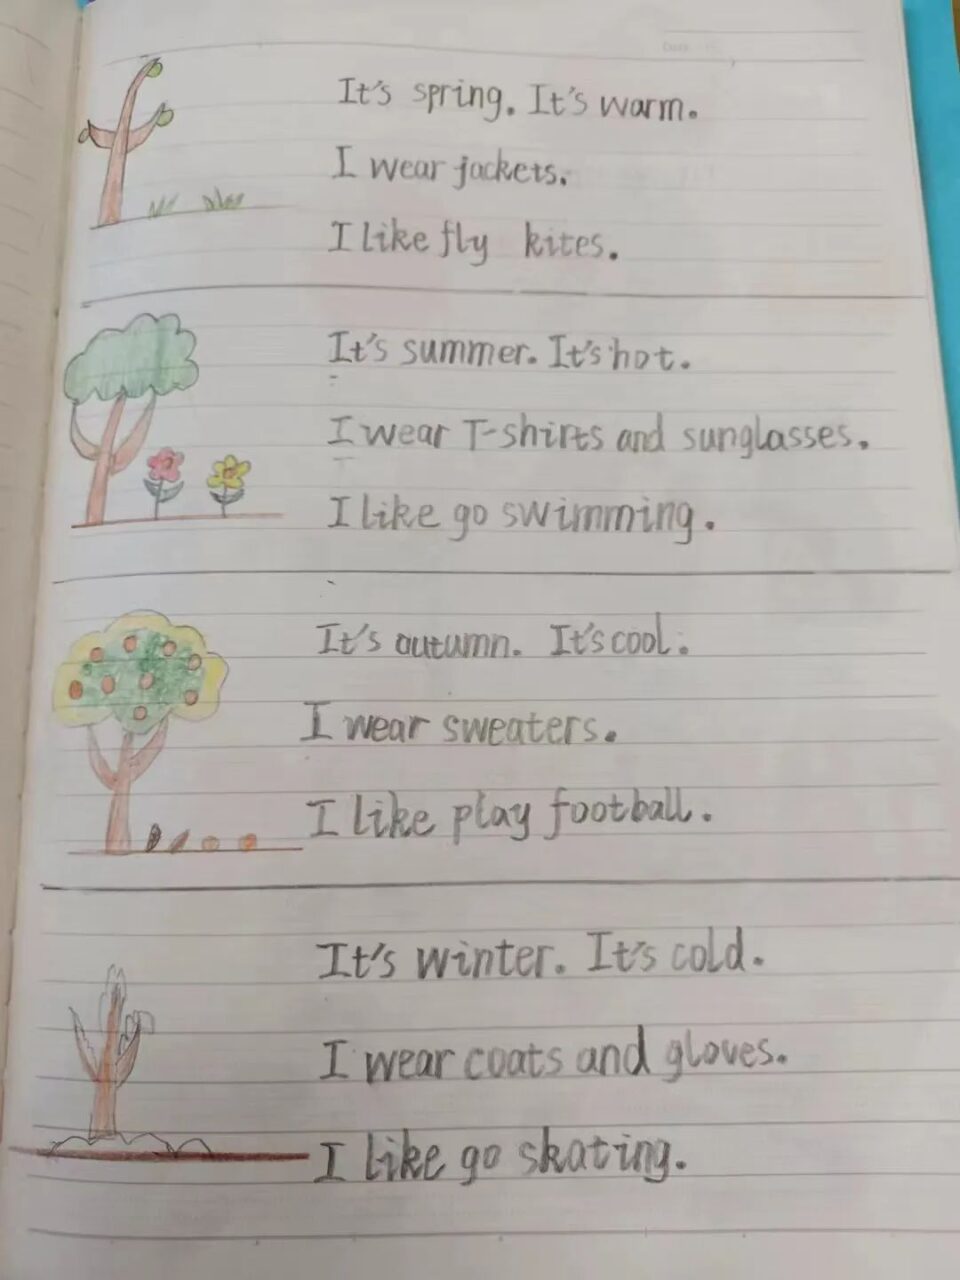 It's spring. It's warm.
I wear jackets.
I like fly kites.
It's summer. It's hot.
I wear T-shirts and sunglasses.
I like go swimming.
It's autumn. It's cool.
I wear sweaters.
I like play football.
It's winter. It's cold.
I wear coats and gloves.
I like go skating.